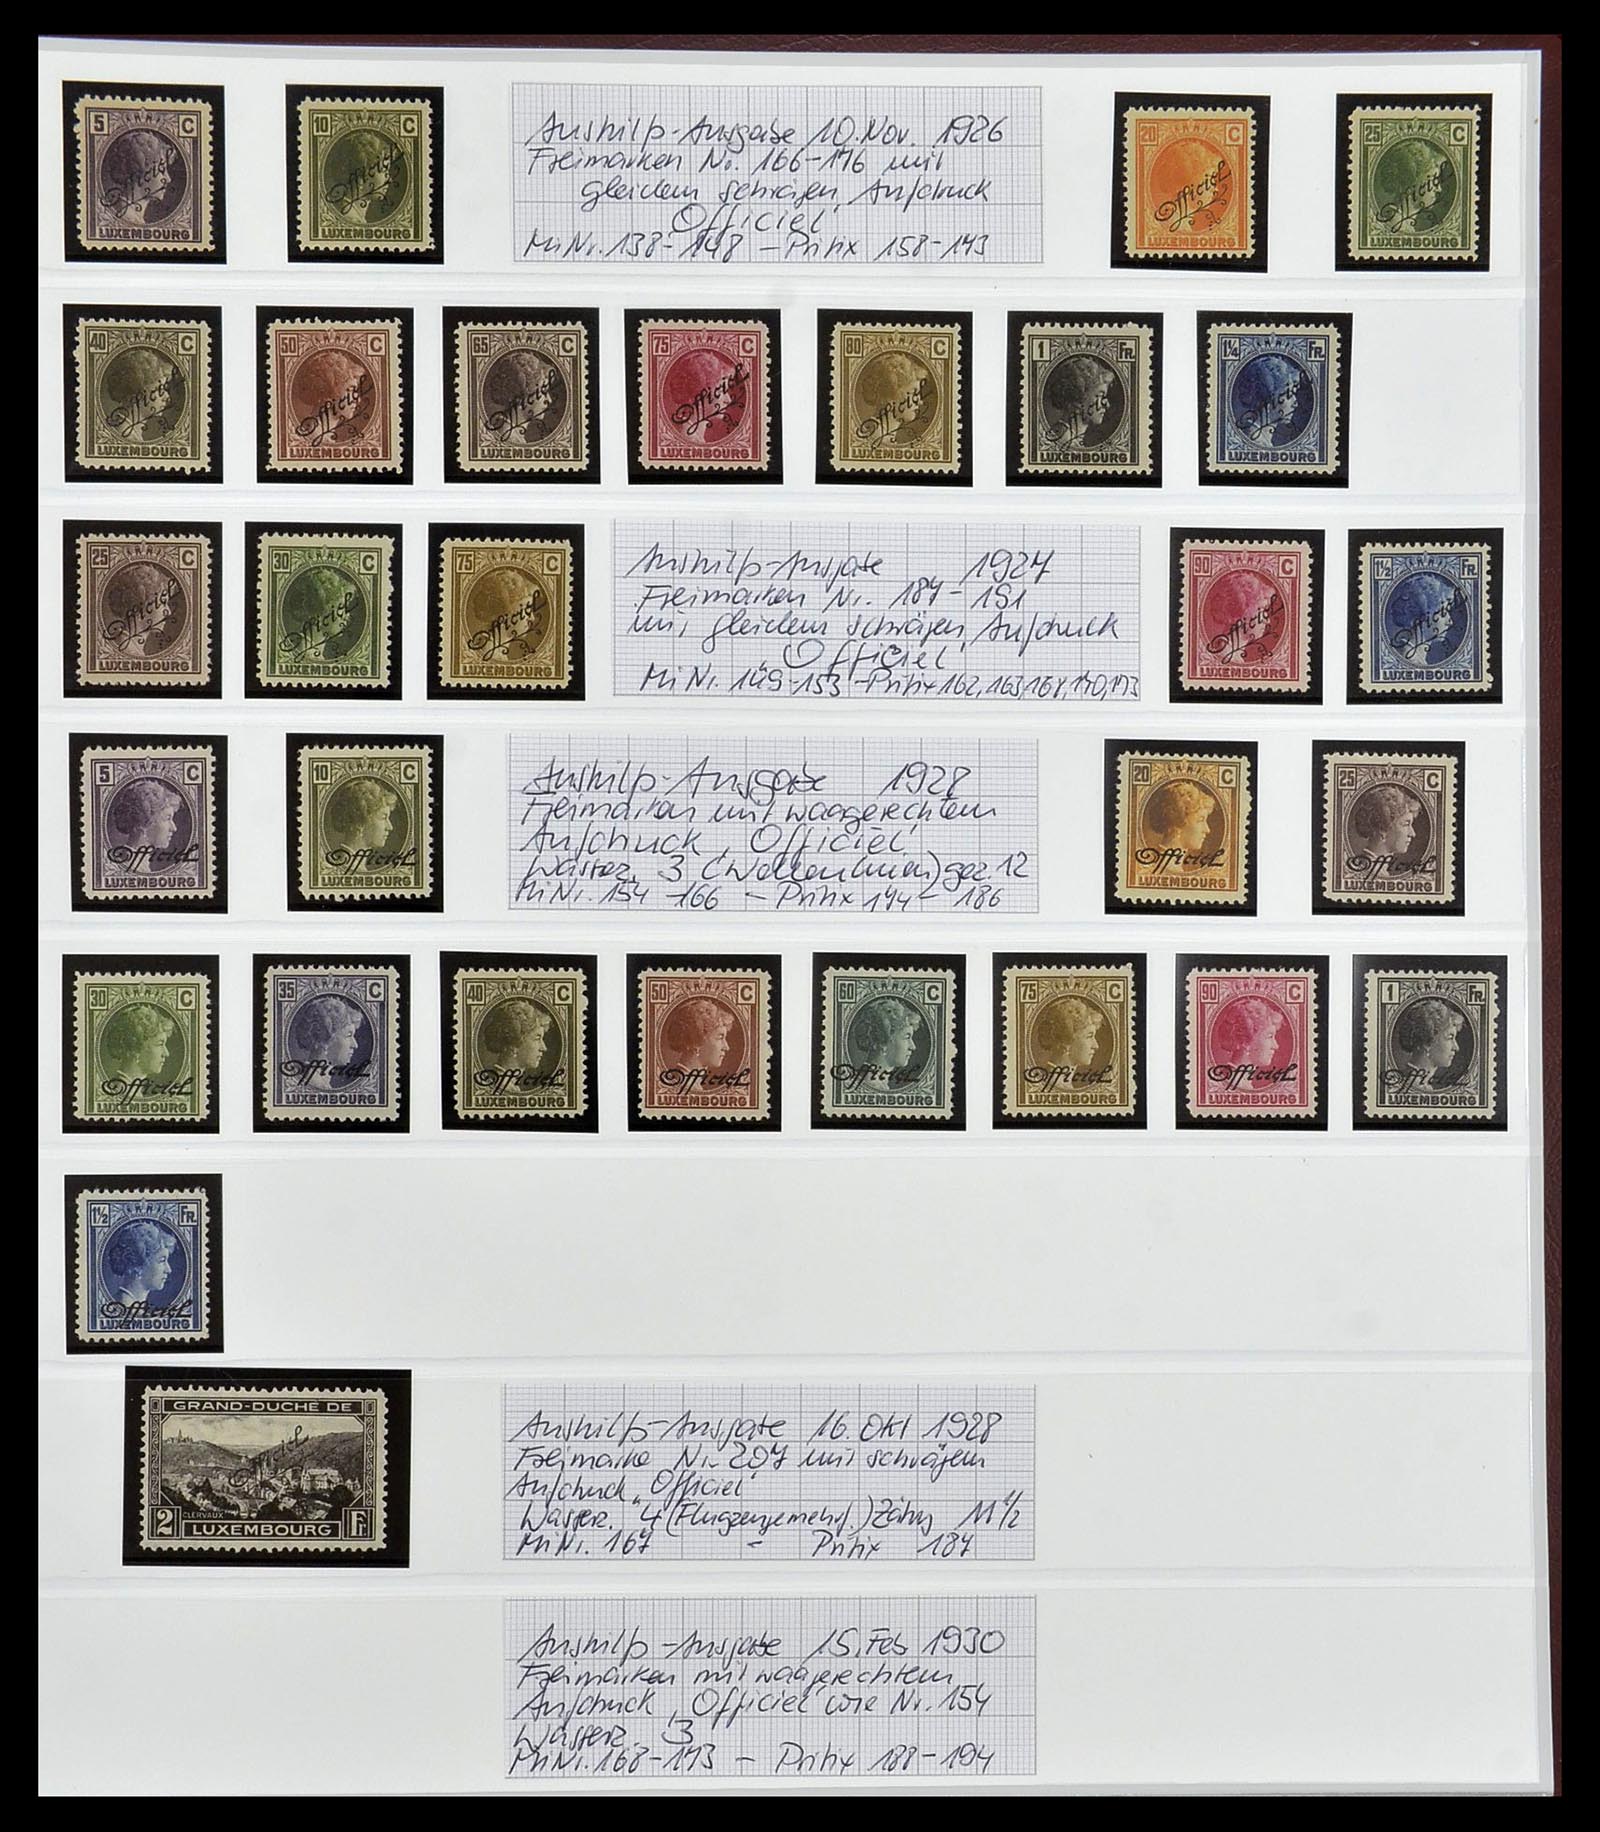 5 C Officiel LUXEMBOURG
10 C Officiel LUXEMBOURG
Aushilfs-Ausgabe 10. Nov. 1926
Freimarken Nr. 166-176 mit
gleichem schrägen Aufdruck
Officiel
MiNr. 138-148 - Prifix 158-173
20 C Officiel LUXEMBOURG
25 C Officiel LUXEMBOURG
40 C Officiel LUXEMBOURG
50 C Officiel LUXEMBOURG
65 C Officiel LUXEMBOURG
75 C Officiel LUXEMBOURG
80 C Officiel LUXEMBOURG
1 FR. Officiel LUXEMBOURG
1¼ FR. Officiel LUXEMBOURG
25 C Officiel LUXEMBOURG
30 C Officiel LUXEMBOURG
75 C Officiel LUXEMBOURG
Aushilfs-Ausgabe 1927
Freimarken Nr. 187-191
mit gleichem schrägen Aufdruck
„Officiel"
MiNr. 149-153 - Prifix 162, 163, 168, 170, 173
90 C Officiel LUXEMBOURG
1½ FR. Officiel LUXEMBOURG
5 C Officiel LUXEMBOURG
10 C Officiel LUXEMBOURG
Aushilfs-Ausgabe 1928
Freimarken mit waagerechtem
Aufdruck „Officiel"
Wasserz. 3 (Wellenlinien) gez. 12
MiNr. 154-166 - Prifix 174-186
20 C Officiel LUXEMBOURG
25 C Officiel LUXEMBOURG
30 C Officiel LUXEMBOURG
35 C Officiel LUXEMBOURG
40 C Officiel LUXEMBOURG
50 C Officiel LUXEMBOURG
60 C Officiel LUXEMBOURG
75 C Officiel LUXEMBOURG
90 C Officiel LUXEMBOURG
1 FR. Officiel LUXEMBOURG
1½ FR. Officiel LUXEMBOURG
GRAND-DUCHÉ DE
Officiel
CLERVAUX
2 LUXEMBOURG Fr.
Aushilfs-Ausgabe 16. Okt 1928
Freimarke Nr. 207 mit schrägem
Aufdruck „Officiel"
Wasserz. 4 (Flugzeuge mehrf.) Zähng 11 1/2
MiNr. 167 - Prifix 187
Aushilfs-Ausgabe 15. Feb 1930
Freimarken mit waagerechtem
Aufdruck „Officiel" wie Nr. 154
Wasserz. 3
MiNr. 168-173 - Prifix 188-194